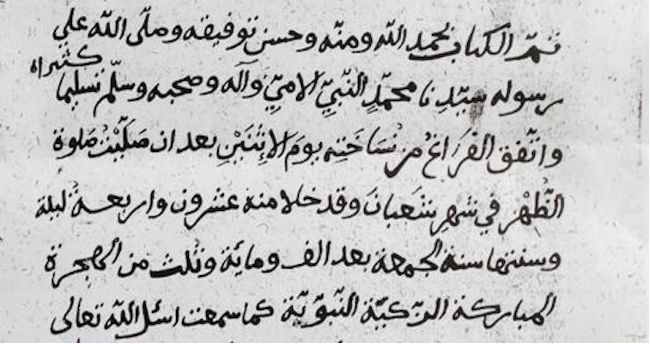 تمّ الكتاب بحمد اللّه ومنّه وحسن توفيقه وصلّى اللّه على
رسوله سيّدِنا محمّدٍ النّبيّ الاميّ وآله وصحبه وسلّم تسليما كثيراه
واتّفق الفَرَاغُ من نُسَاخَتِه يومَ الاِثْنَيْنِ بعد ان صَلَّيْتُ صَلوة
الظُّهْرِ في شهرِ شَعبانَ وقد خلا منه عشرون واربعة ليلة
وسنتها سنة الجمعة بعد الف ومائة وثلث من الهجرة
المباركة الزّكيّة النّبوّيّة كما سمعت اسئل اللّه تعالى